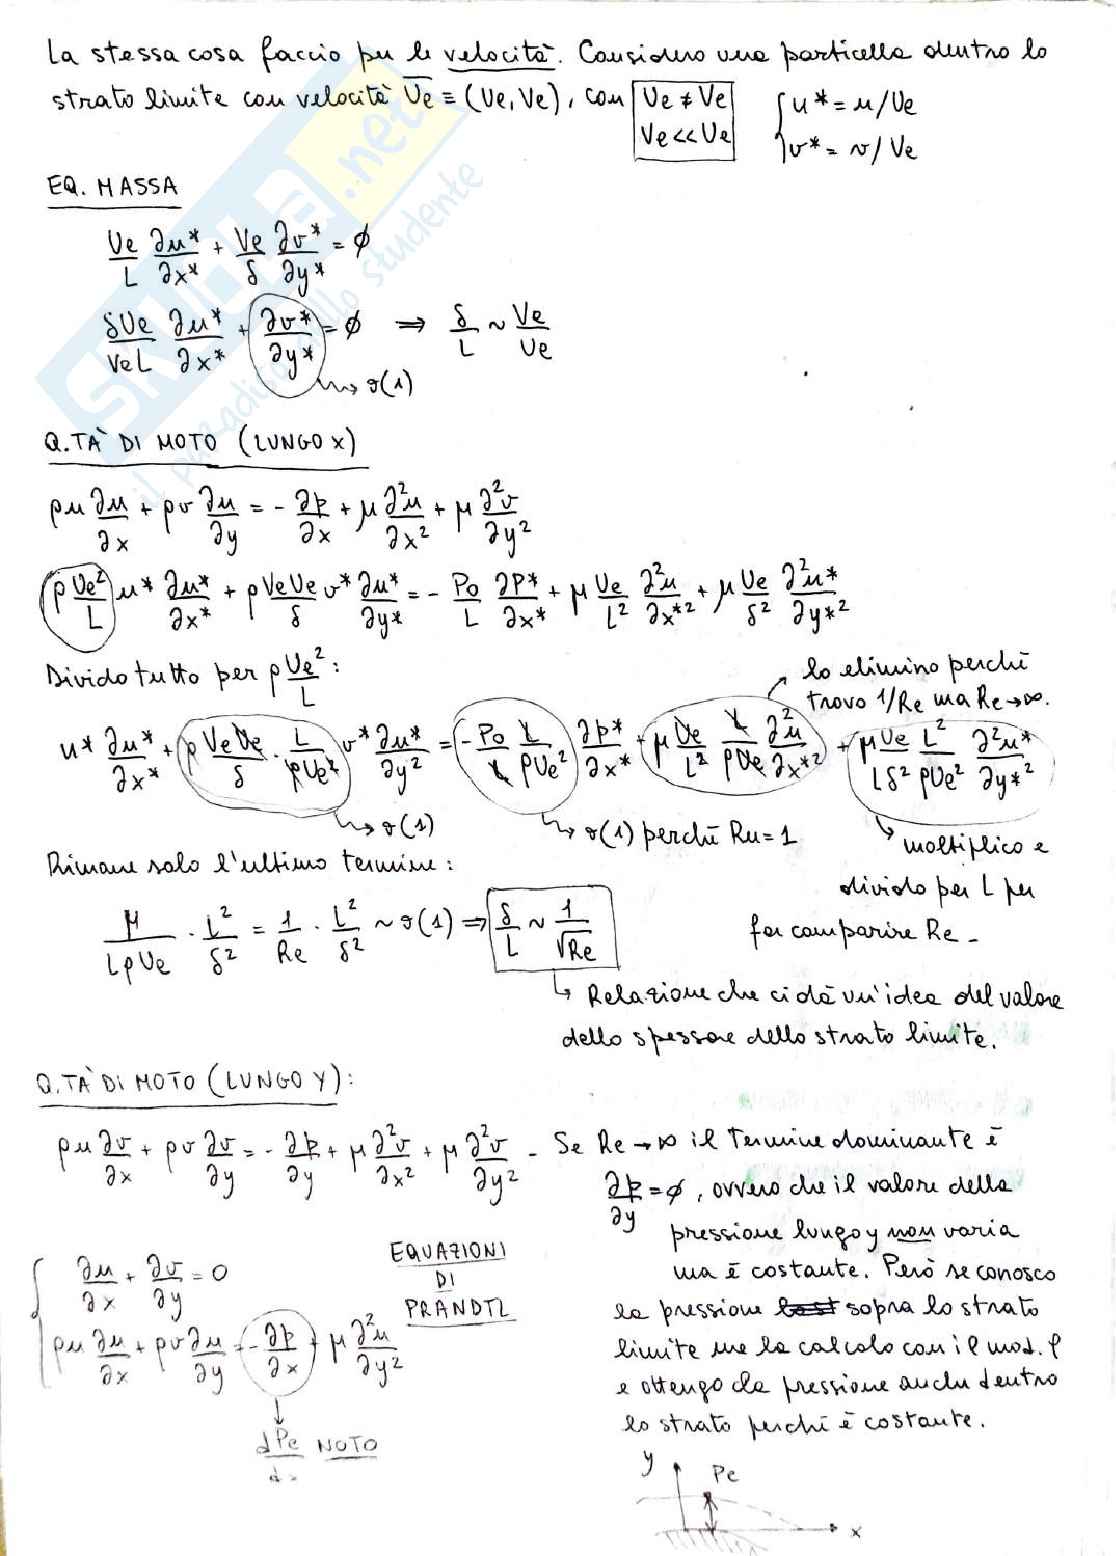 La stessa cosa faccio per le velocità. Considero una particella dentro lo
strato limite con velocità Ue ≡ (Ue, Ve), con Ue ≠ Ve
Ve << Ue
{ u* = u/Ue
v* = v/Ve
EQ. MASSA
Ue/L ∂u*/∂x* + Ve/δ ∂v*/∂y* = ϕ
δUe/VeL ∂u*/∂x* + ∂v*/∂y* = ϕ ⇒ δ/L ~ Ve/Ue
↝ σ(1)
Q.TÀ DI MOTO (LUNGO X)
ρu ∂u/∂x + ρv ∂u/∂y = - ∂p/∂x + μ ∂²u/∂x² + μ ∂²v/∂y²
ρ Ue²/L u* ∂u*/∂x* + ρ VeUe/δ v* ∂u*/∂y* = - Po/L ∂P*/∂x* + μ Ue/L² ∂²u/∂x*² + μ Ue/δ² ∂²u*/∂y*²
Divido tutto per ρ Ue²/L :
lo elimino perché
trovo 1/Re ma Re → ∞.
u* ∂u*/∂x* + ρ VeUe/δ · L/ρUe² v* ∂u*/∂y² = - Po/L L/ρUe² ∂p*/∂x* + μ Ue/L² L/ρUe ∂²u/∂x*² + μUe/Lδ² L²/ρUe² ∂²u*/∂y*²
↝ σ(1)
↝ σ(1) perché Ru = 1
↳ moltiplico e
divido per L per
far comparire Re -
Rimane solo l'ultimo termine :
μ/LρUe · L²/δ² = 1/Re · L²/δ² ~ σ(1) ⇒ δ/L ~ 1/√Re
↳ Relazione che ci dà un'idea del valore
dello spessore dello strato limite.
Q.TÀ DI MOTO (LUNGO Y) :
ρu ∂v/∂x + ρv ∂v/∂y = - ∂p/∂y + μ ∂²v/∂x² + μ ∂²v/∂y² - Se Re → ∞ il termine dominante è
∂p/∂y = ϕ, ovvero che il valore della
pressione lungo y non varia
ma è costante. Però se conosco
la pressione sopra lo strato
limite me la calcolo con il mod. f
e ottengo la pressione anche dentro
lo strato perché è costante.
EQUAZIONI
DI
PRANDTL
{ ∂u/∂x + ∂v/∂y = 0
ρu ∂u/∂x + ρv ∂u/∂y = - ∂p/∂x + μ ∂²u/∂y²
↓
dPe/dx NOTO
y
Pe
x
SKUOLA.net
il paradiso dello studente